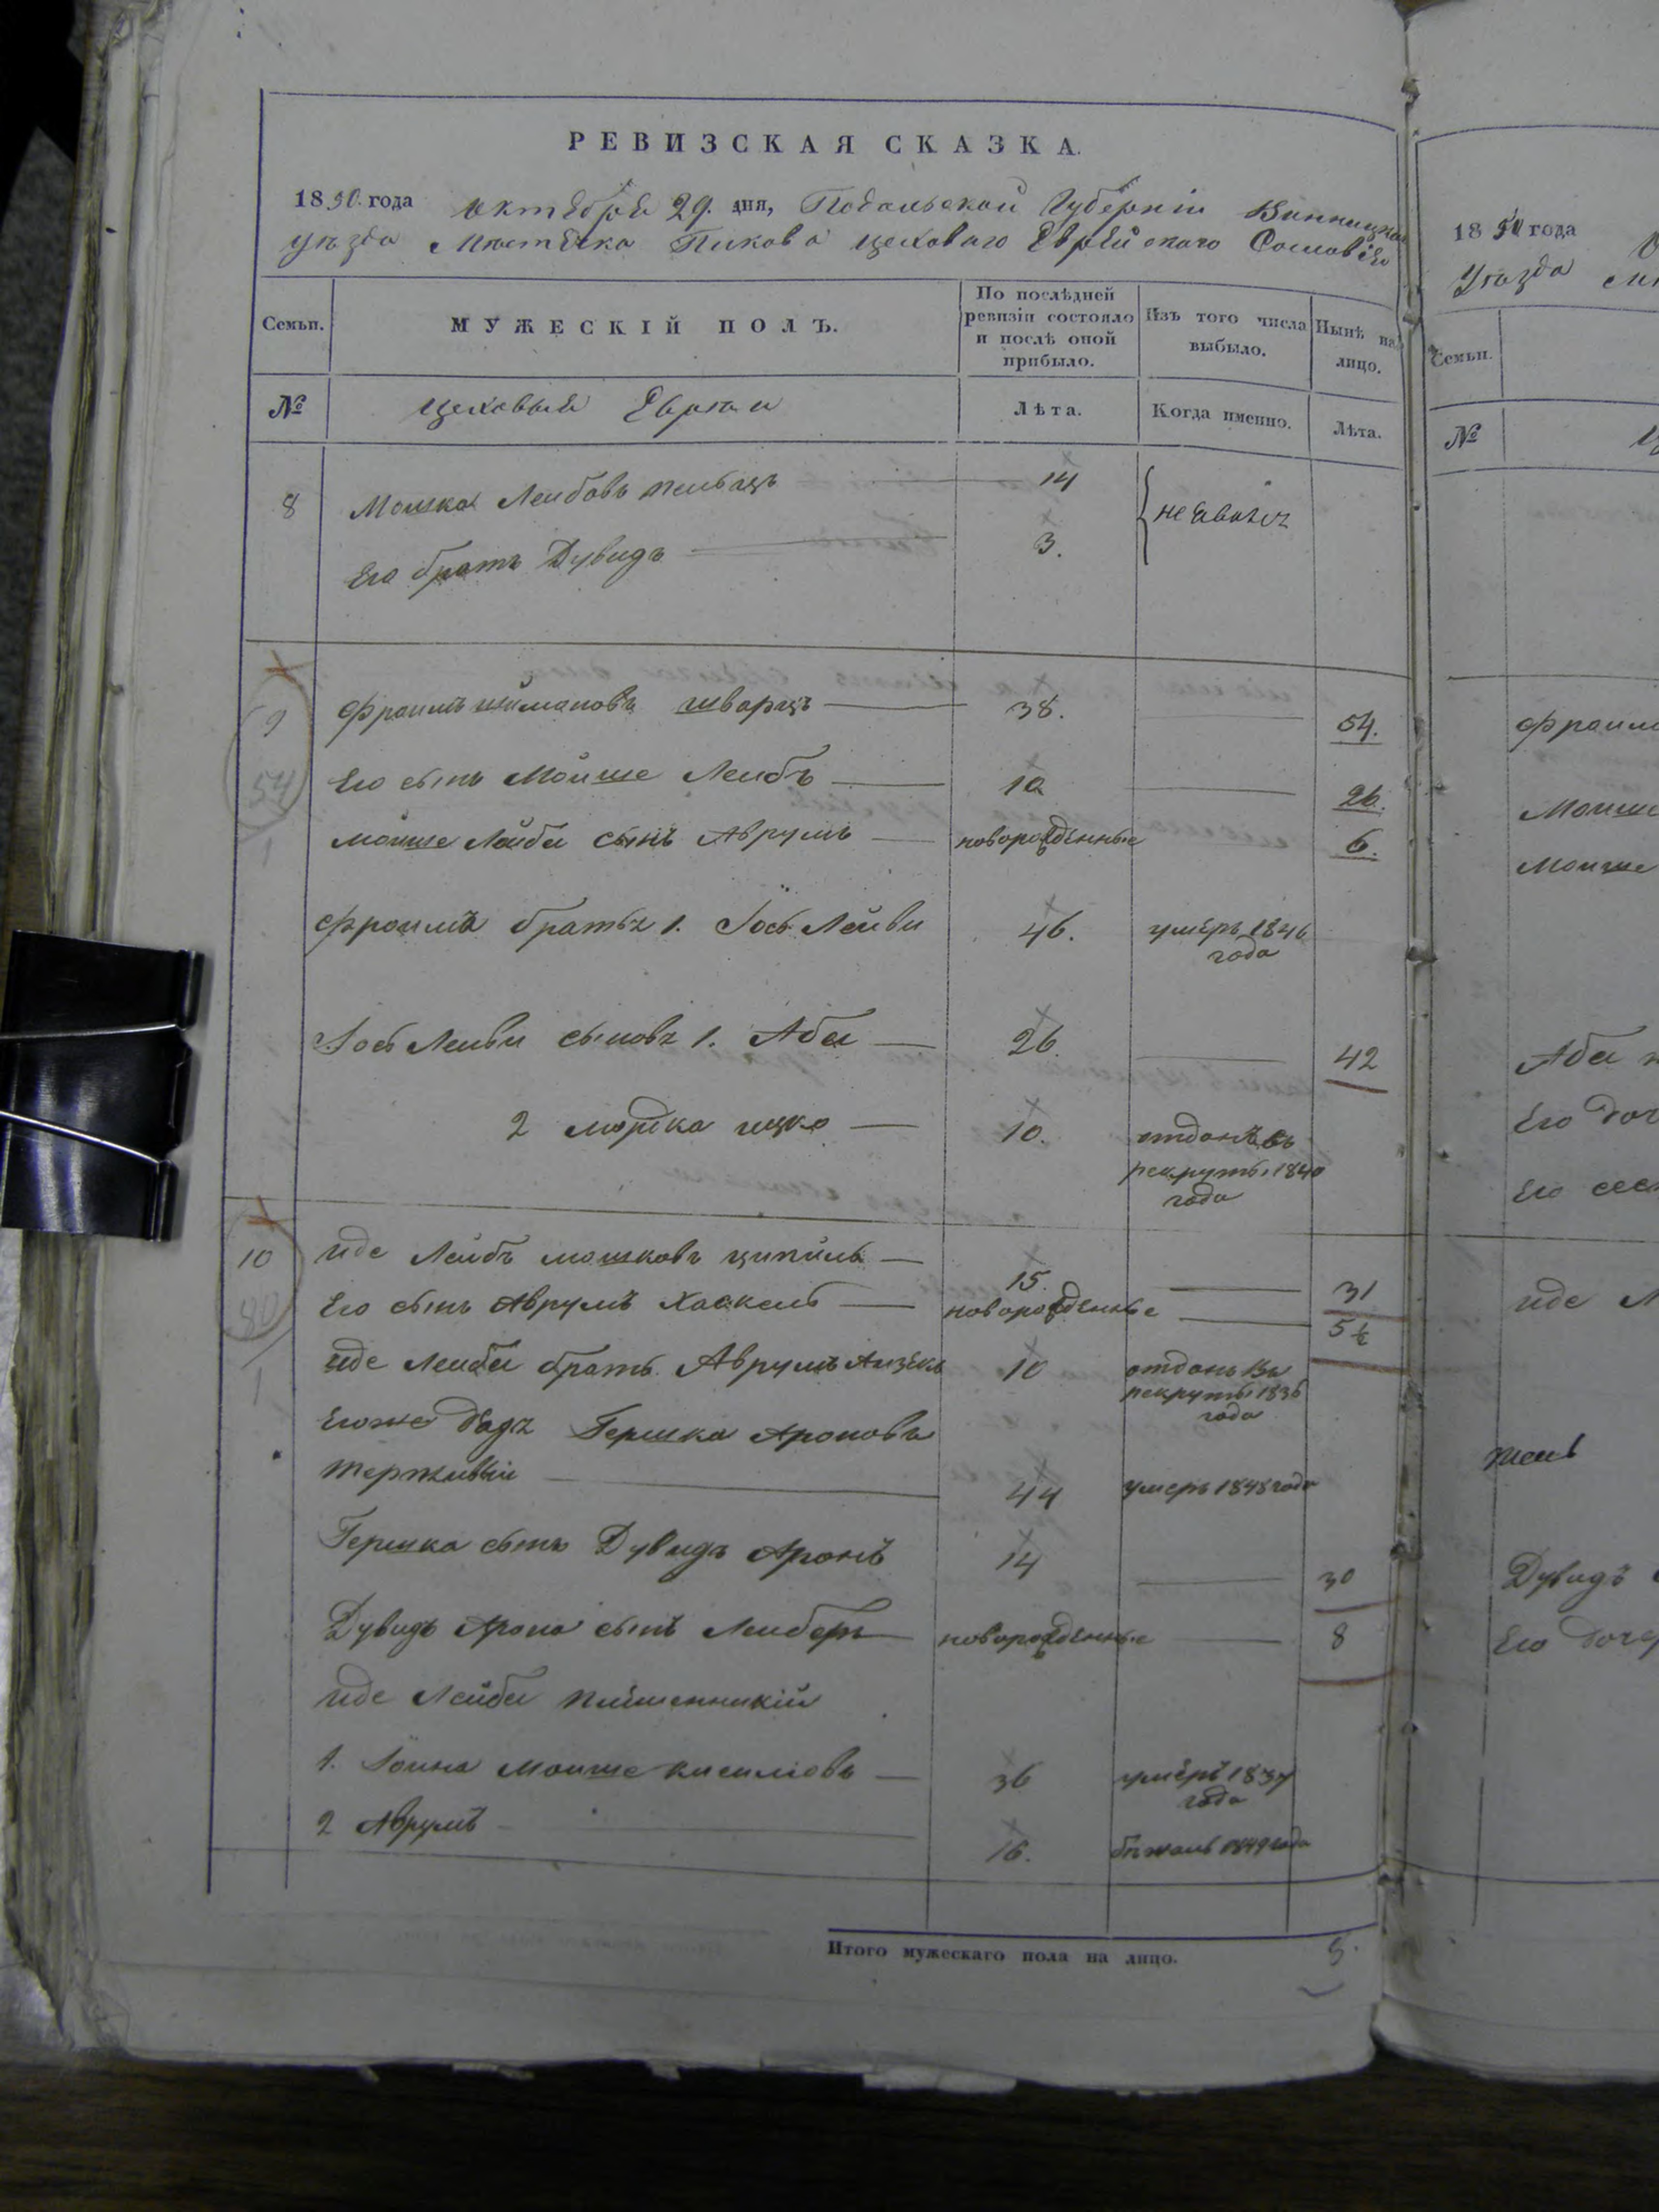 РЕВИЗСКАЯ СКАЗКА.
1850 года Октября 29. дня, Подольской Губерніи Винницкаго
уѣзда Мѣстечка Пикова цеховаго Еврейскаго Сословія
Семьи. МУЖЕСКІЙ ПОЛЪ. По послѣдней ревизіи состояло и послѣ оной прибыло. Изъ того числа выбыло. Нынѣ на лицо.
№ Цеховыя Евреи Лѣта. Когда именно. Лѣта.
8 Мошка Лейбовъ 14 неявился
Его братъ Дувидъ 3.
9 Фроимъ Шимановъ Шварцъ 38. 54.
54 Его сынъ Мойше Лейбъ 10 26.
1 Мойше Лейбы сынъ Аврумъ новорожденные 6.
Фроима братья 1. Іось Лейви 46. умеръ 1846
года
Іось Лейви сыновья 1. Аба 26. 42
2 Мордка Ицко 10. отданъ въ
рекруты 1840
года
10 Иде Лейбъ Мошковъ 15. 31
Его сынъ Аврумъ Хаскель новорожденные 5½
Иде Лейбы братъ Аврумъ 10 отданъ въ
рекруты 1836
года
1 Егоже дядя Гершка Ароновъ
44 умеръ 1848 года
Гершка сынъ Дувидъ Аронъ 14 30
Дувидъ Арона сынъ Лейберъ новорожденные 8
Иде Лейбы
1. Іойна Мойше 36 умеръ 1837
года
2 Аврумъ 16. бѣжалъ 1849 года
Итого мужескаго пола на лицо. 8.
1850 года
Уѣзда
Семьи.
№
Фроима
Мойше
Мойше
Аба
Его доч
Его сес
Иде Л
Дувидъ
Его дочер